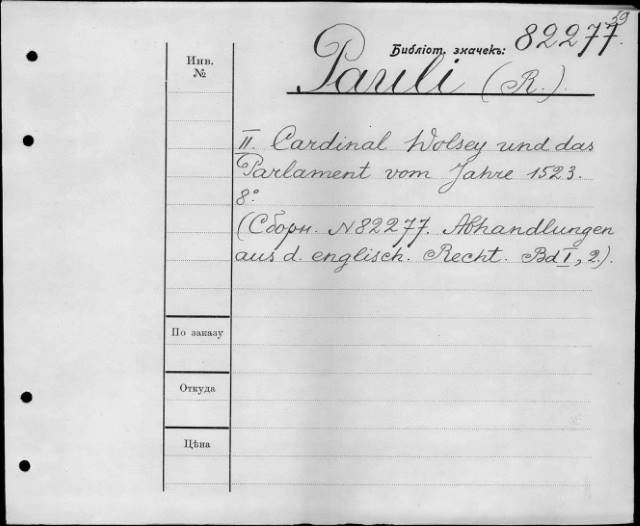 59
Библіот. значекъ: 82277.
Инв.
№
Pauli (R.).
II. Cardinal Wolsey und das
Parlament vom Jahre 1523.
8°
(Сборн. N82277. Abhandlungen
aus d. englisch. Recht. Bd I, 2.).
По заказу
Откуда
Цѣна